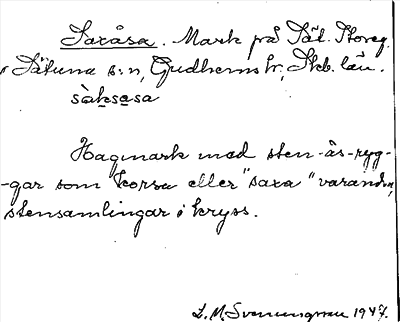 Saxåsa. Mark på Sät. Storeg.
i Sätuna s:n, Gudhems hr, Skb. län.
sàksasa
Hagmark med sten-ås-ryg-
-gar som korsa eller "saxa" varandra,
stensamlingar i kryss.
L. M. Svenungsson 1947.